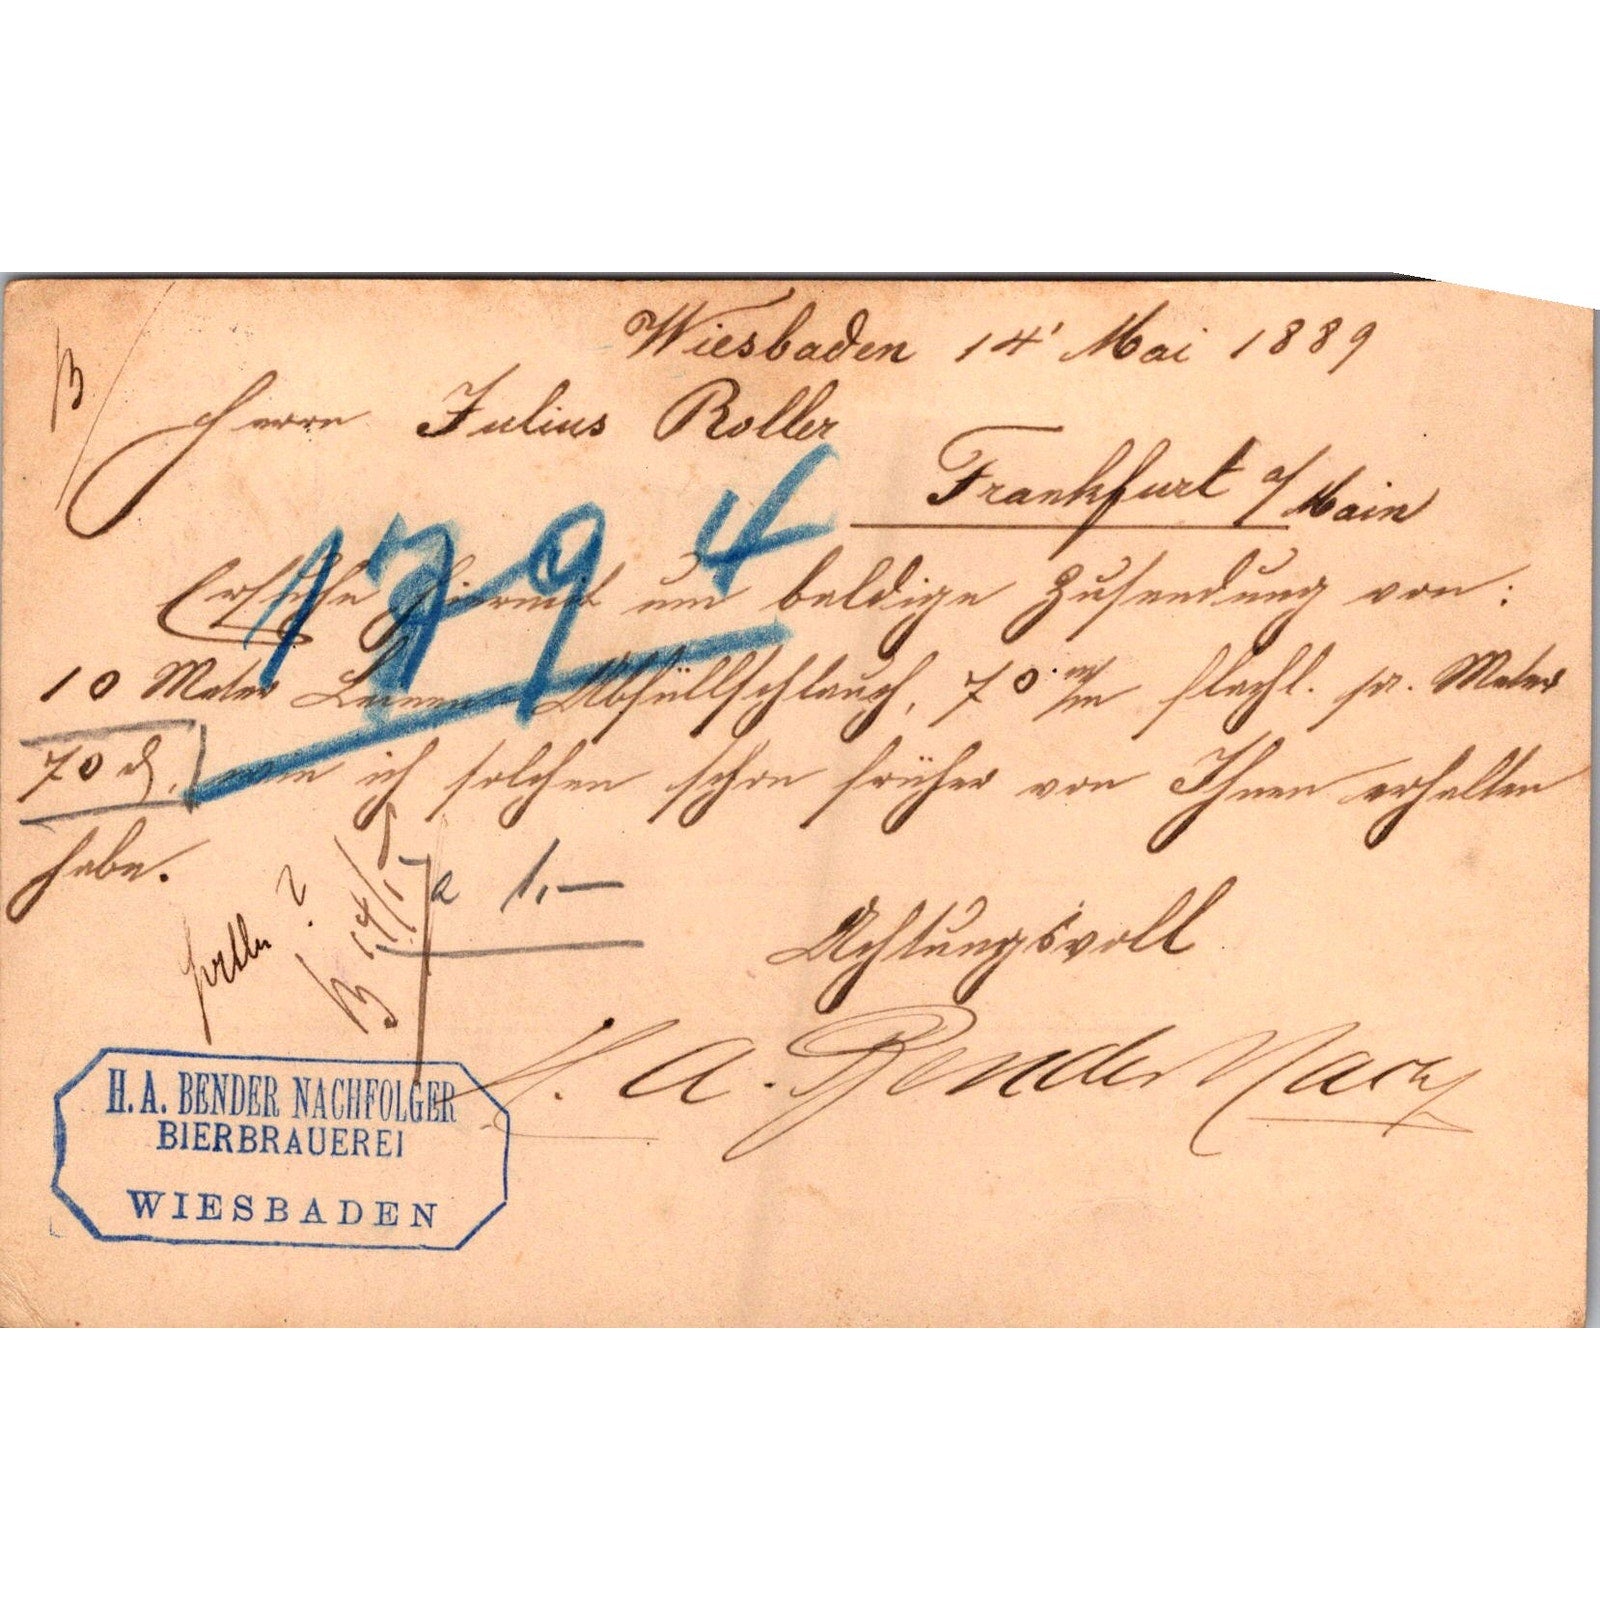 Wiesbaden 14' Mai 1889
B
Herrn Julius Roller
Frankfurt a/Main
1794
Ersuche hiermit um baldige Zusendung von:
10 Meter Leinen Abfüllschlauch, 70 m/m flachl. pr. Meter
70 ₰, wie ich solchen schon früher von Ihnen erhalten
habe.
a 1,—
B 14/5
Achtungsvoll
H. A. Bender Nachf
H. A. BENDER NACHFOLGER
BIERBRAUEREI
WIESBADEN